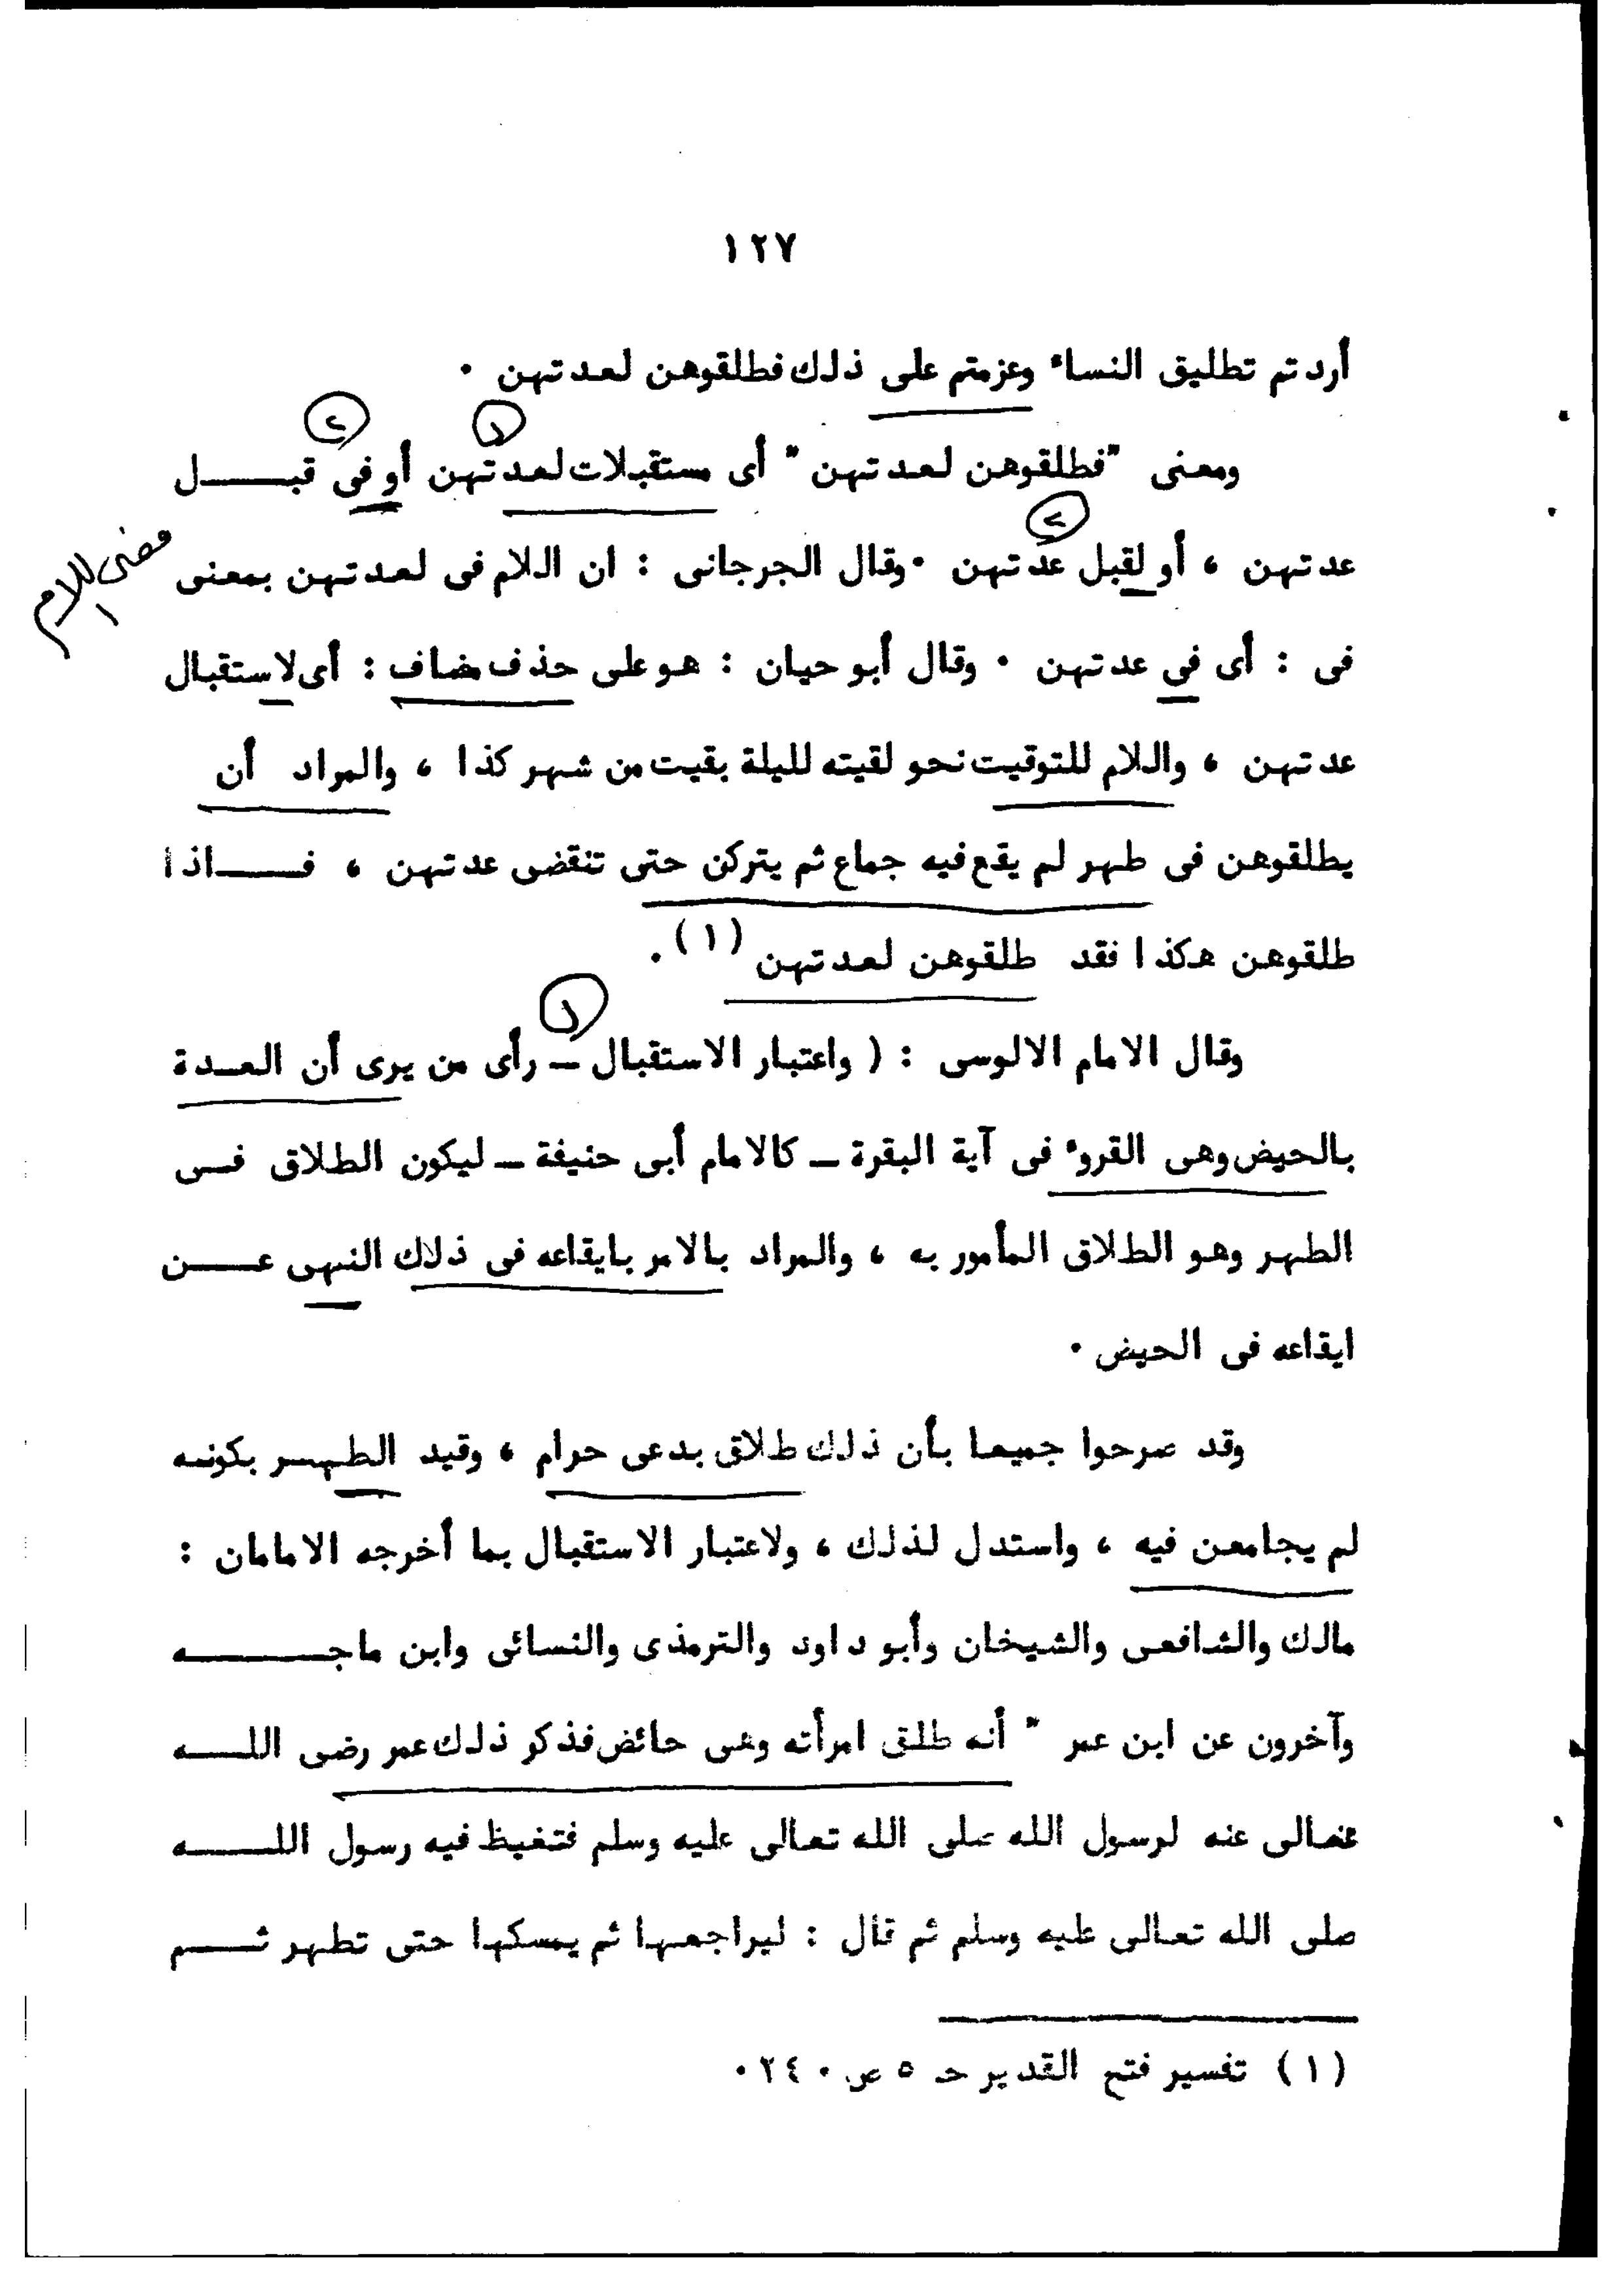 ١٢٧
أردتم تطليق النساء وعزمتم على ذلك فطلقوهن لعدتهن .
١ ٢
ومعنى "فطلقوهن لعدتهن" أى مستقبلات لعدتهن أو فى قبل
عدتهن ، أو لقبل عدتهن . وقال الجرجانى : ان اللام فى لعدتهن بمعنى
معنى اللام
فى : أى فى عدتهن . وقال أبو حيان : هو على حذف مضاف : أى لاستقبال
عدتهن ، واللام للتوقيت نحو لقيته لليلة بقيت من شهر كذا ، والمراد أن
يطلقوهن فى طهر لم يقع فيه جماع ثم يتركن حتى تنقضى عدتهن ، فاذا
طلقوهن هكذا فقد طلقوهن لعدتهن (١) .
١
وقال الامام الالوسى : ( واعتبار الاستقبال ـ رأى من يرى أن العدة
بالحيض وهى القروء فى آية البقرة ـ كالامام أبى حنيفة ـ ليكون الطلاق فى
الطهر وهو الطلاق المأمور به ، والمراد بالامر بايقاعه فى ذلك النهى عن
ايقاعه فى الحيض .
وقد صرحوا جميعا بأن ذلك طلاق بدعى حرام ، وقيد الطهر بكونه
لم يجامعن فيه ، واستدل لذلك ، ولاعتبار الاستقبال بما أخرجه الامامان :
مالك والشافعى والشيخان وأبو داود والترمذى والنسائى وابن ماجه
وآخرون عن ابن عمر " أنه طلق امرأته وهى حائض فذكر ذلك عمر رضى الله
تعالى عنه لرسول الله صلى الله تعالى عليه وسلم فتغيظ فيه رسول الله
صلى الله تعالى عليه وسلم ثم قال : ليراجعها ثم يمسكها حتى تطهر ثم
(١) تفسير فتح القدير حـ ٥ ص ٢٤٠ .